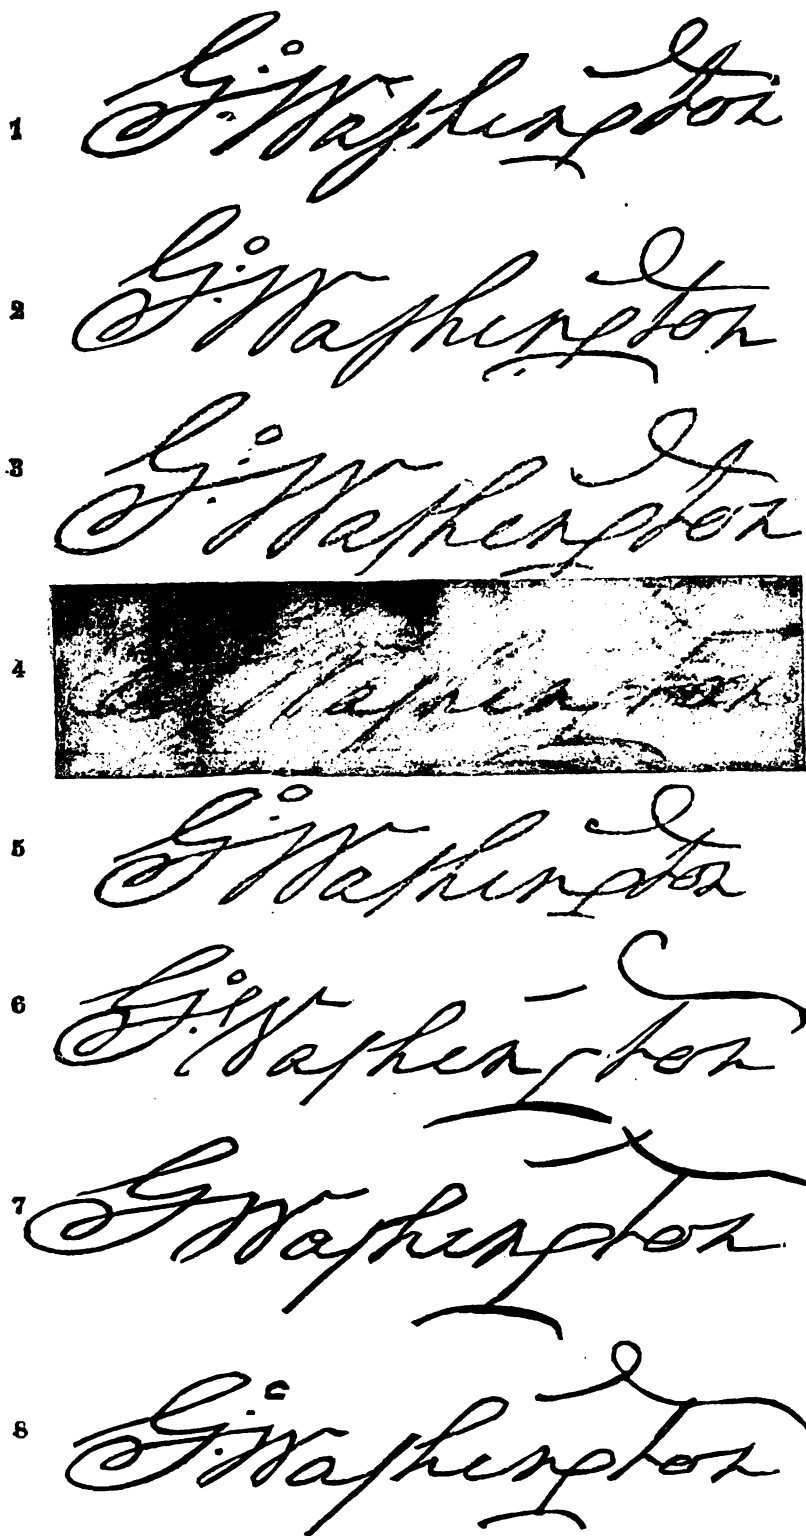 1 Go: Washington
2 Go: Washington
3 Go: Washington
4 Washington
5 Go: Washington
6 Go: Washington
7 G Washington
8 Go: Washington